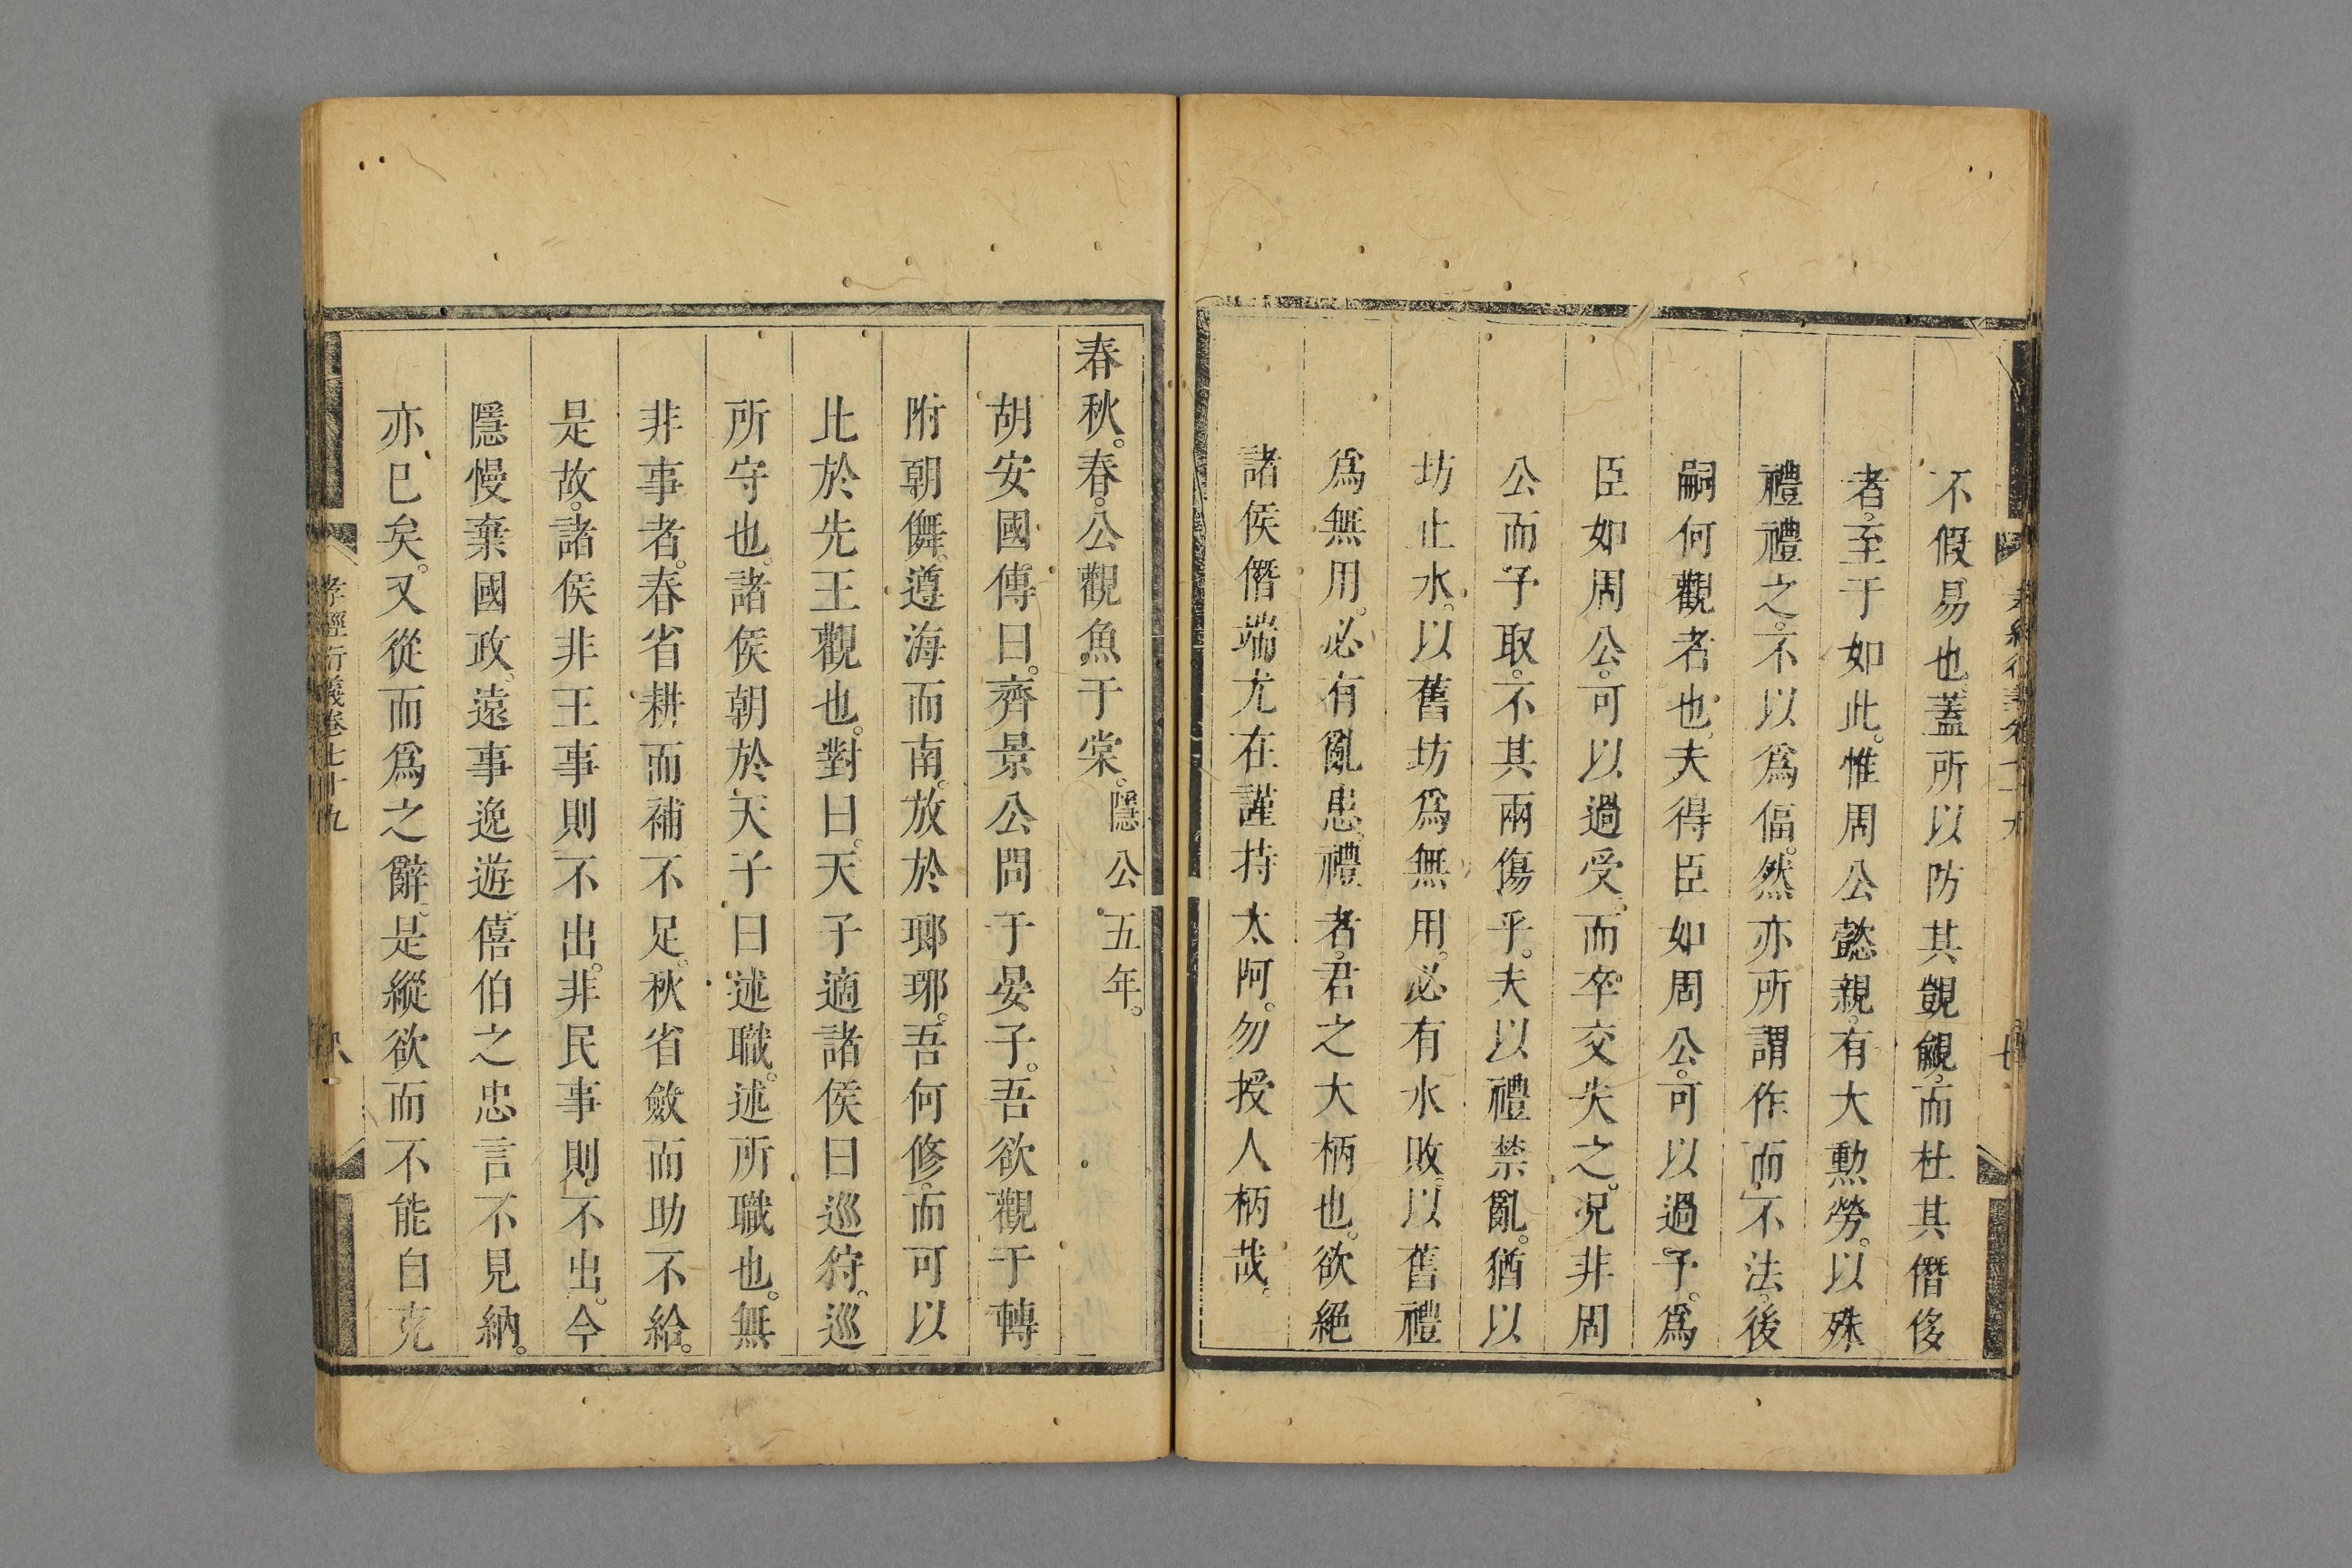 不假易也。蓋所以防其覬覦。而杜其僭侈
者。至于如此。惟周公懿親。有大勲勞。以殊
禮禮之。不以爲偪。然亦所謂作而不法。後
嗣何觀者也。夫得臣如周公。可以過予。爲
臣如周公。可以過受。而卒交失之。況非周
公而予取。不其兩傷乎。夫以禮禁亂。猶以
坊止水。以舊坊爲無用。必有水敗。以舊禮
爲無用。必有亂患。禮者。君之大柄也。欲絕
諸侯僭端尤在謹持太阿。勿授人柄哉。
春秋。春。公觀魚于棠。隱公五年。
胡安國傳曰。齊景公問于晏子。吾欲觀于轉
附朝儛。遵海而南。放於瑯琊。吾何修。而可以
比於先王觀也。對曰。天子適諸侯曰巡狩。巡
所守也。諸侯朝於天子曰述職。述所職也。無
非事者。春省耕而補不足。秋省斂而助不給。
是故。諸侯非王事則不出。非民事則不出。今
隱慢棄國政。遠事逸遊。僖伯之忠言不見納。
亦已矣。又從而爲之辭。是縱欲而不能自克
孝經衍義卷七十九